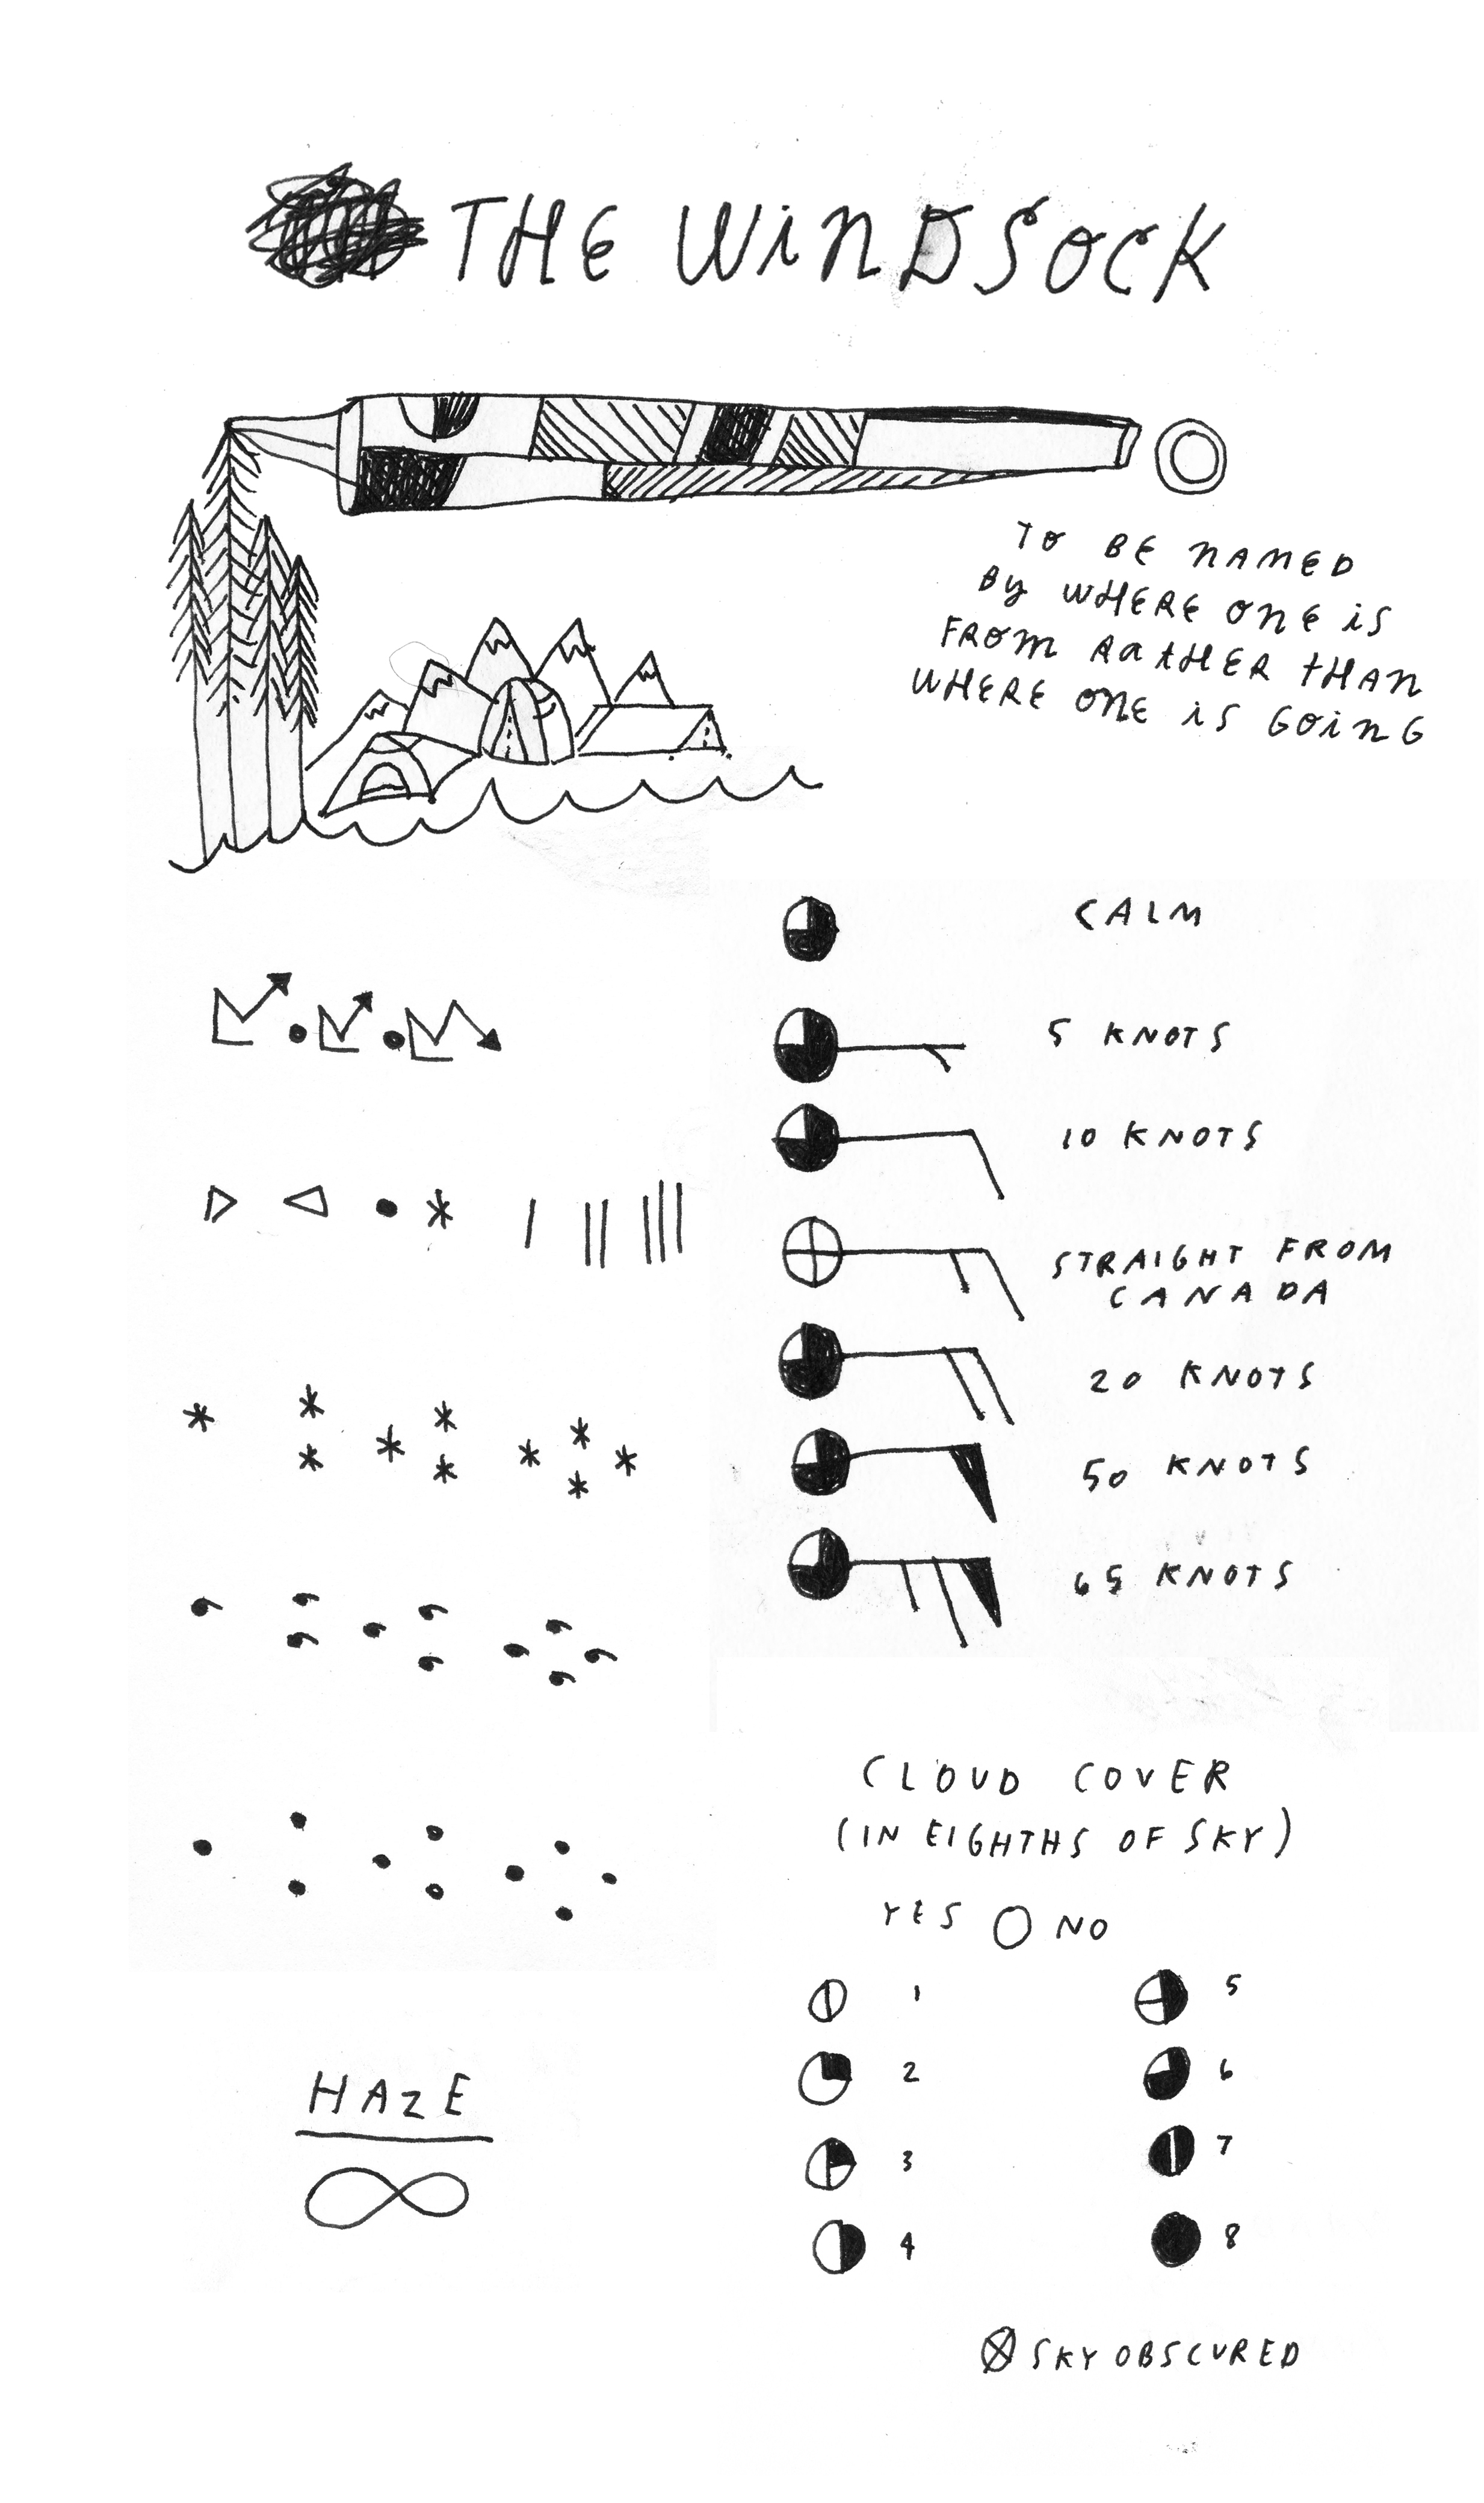 THE WINDSOCK
TO BE NAMED
BY WHERE ONE IS
FROM RATHER THAN
WHERE ONE IS GOING
CALM
5 KNOTS
10 KNOTS
STRAIGHT FROM
CANADA
20 KNOTS
50 KNOTS
65 KNOTS
CLOUD COVER
(IN EIGHTHS OF SKY)
YES NO
1 5
2 6
3 7
4 8
HAZE
SKY OBSCURED